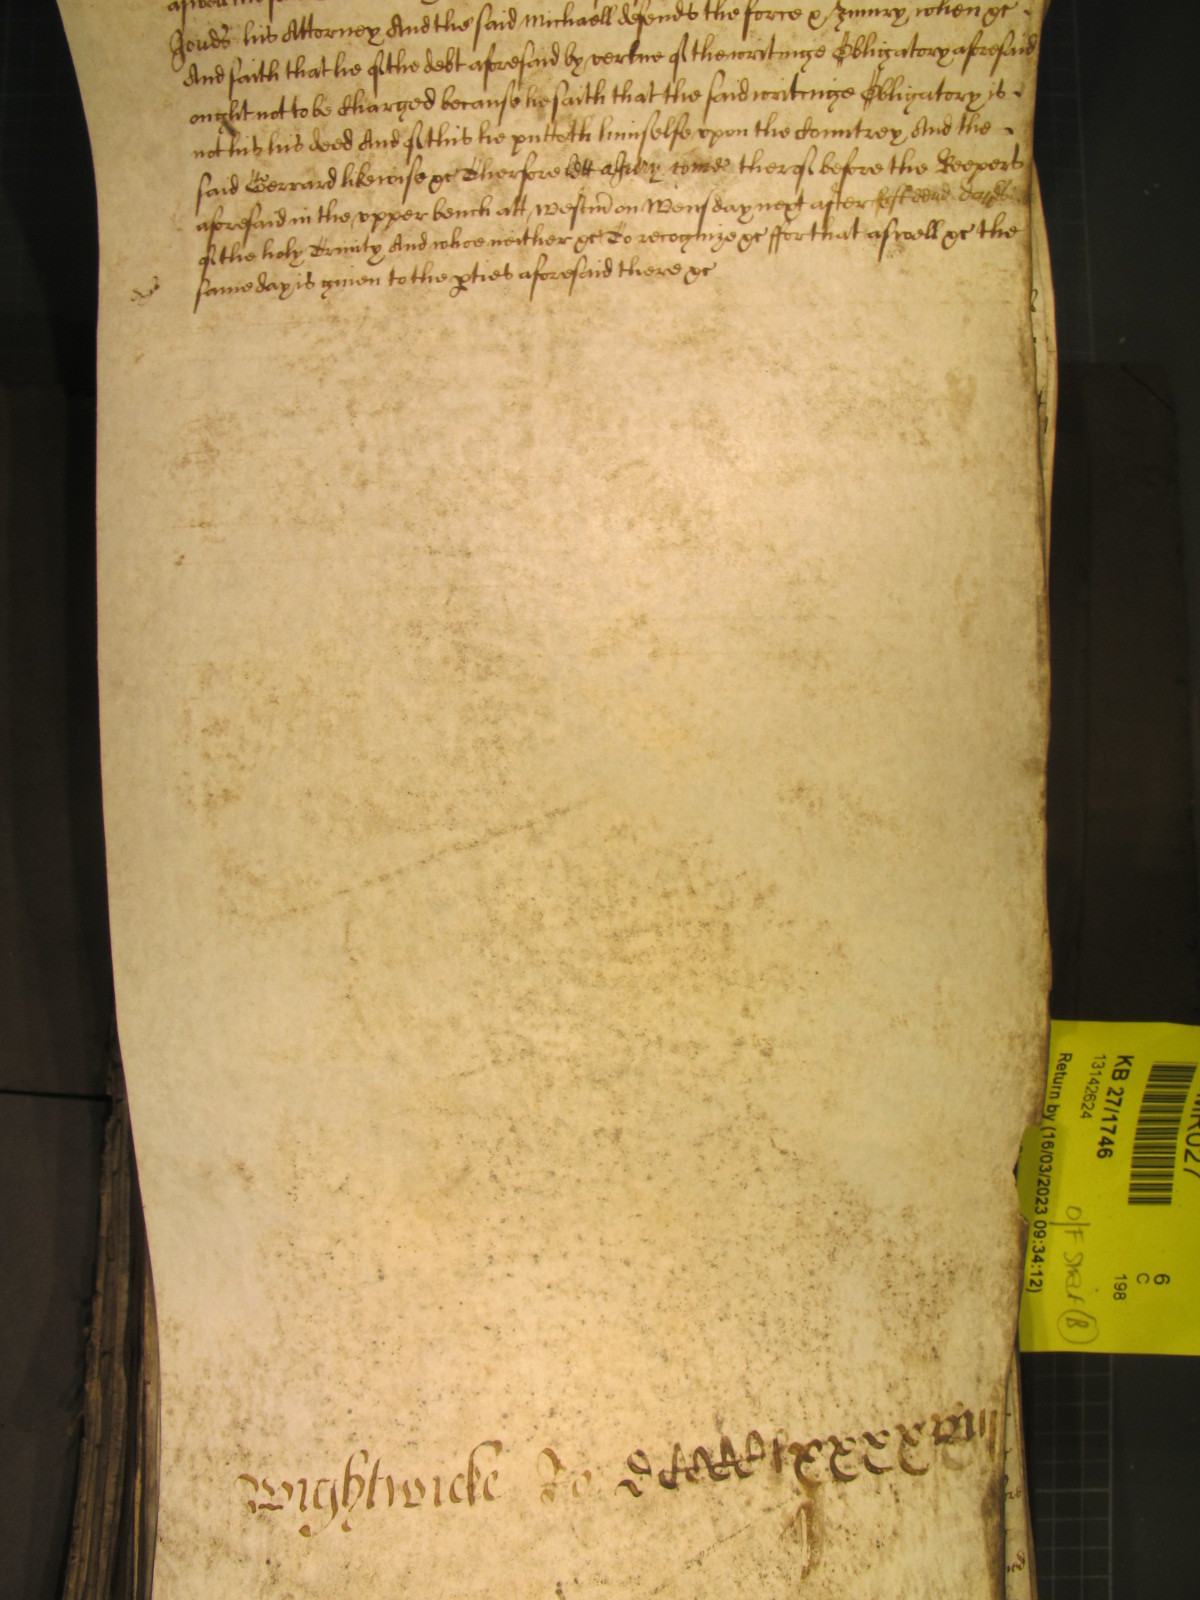 his Attorney And the said Michaell defends the force & Iniury when &c
And saith that he of the debt aforesaid by vertue of the writinge Obligatory aforesaid
ought not to be Charged because he saith that the said writinge Obligatory is
not his deed And of this he putteth himselfe vpon the Countrey And the
said Gerrard likewise &c Therfore lett a Jury come therof before the Keepers
aforesaid in the vpper bench att Westmr on Wensday next after
of the holy Trinity And whoe neither &c To recognize &c ffor that aswell &c the
same day is giuen to the pties aforesaid there &c
Wightwicke Ro
MR027
KB 27/1746
13142624
Return by (16/03/2023 09:34:12)
6
C
198